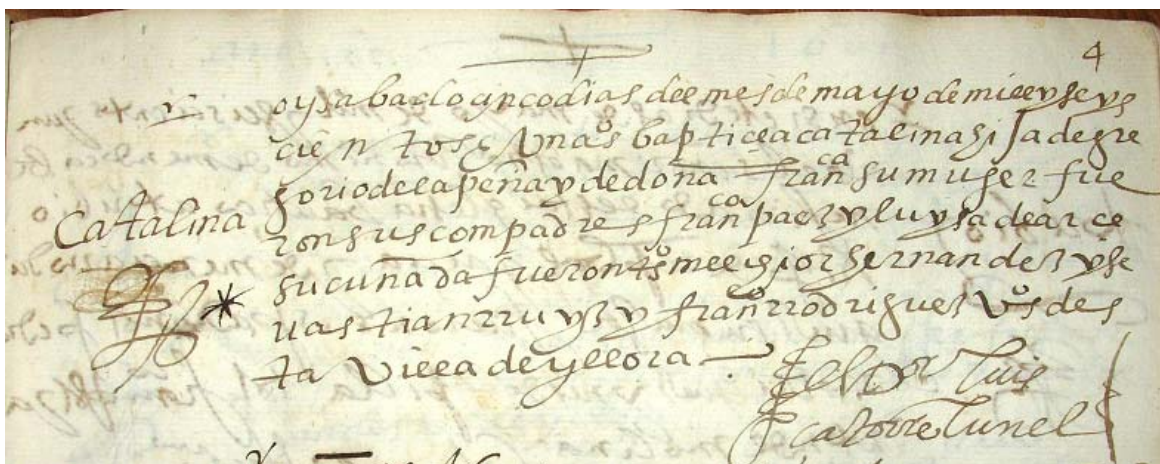 4
oy sabado cinco dias del mes de mayo de mill y seys
cientos y un aos baptice a catalina hija de gre
Catalina
gorio de la peña y de doña franca su muger fue
ron sus compadres franca paez y luysa de arce
su cuñada fueron tos melchior hernandez y se
vastian rruyz y franco rrodriguez vos des
ta villa de yllora
El Dor Luis